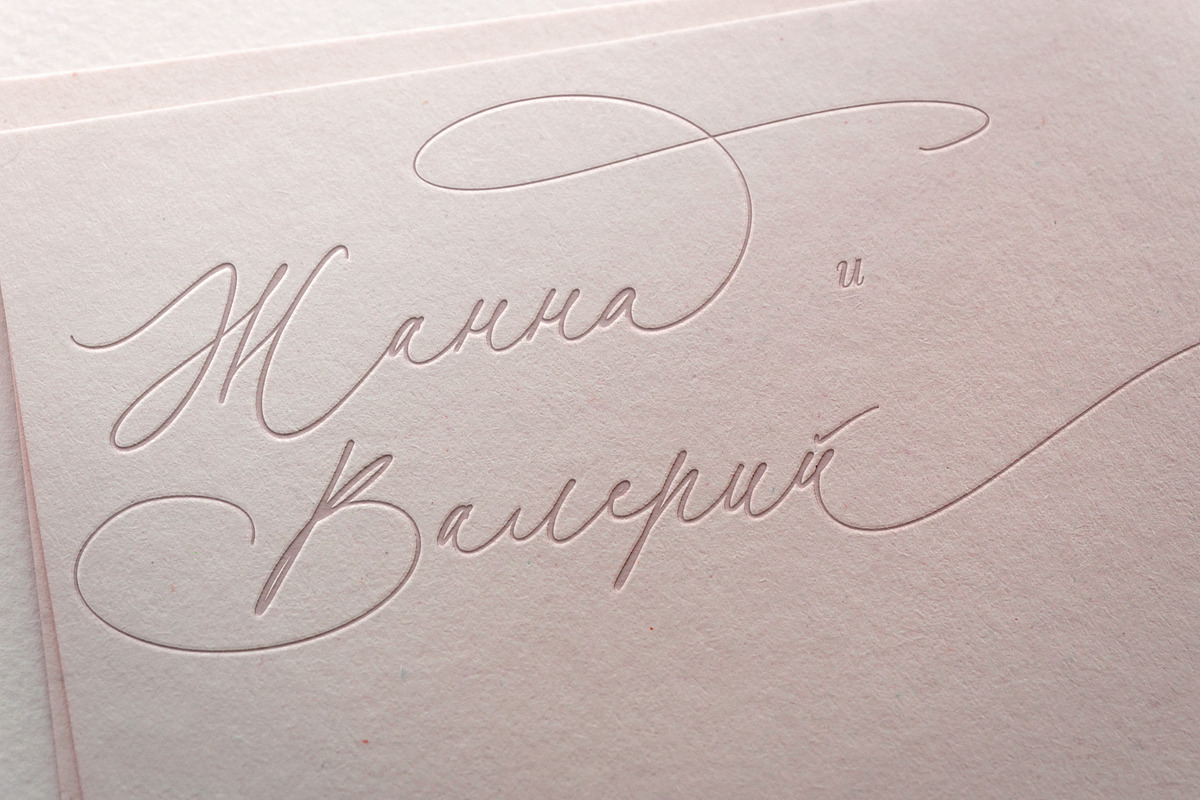 Жанна и
Валерий